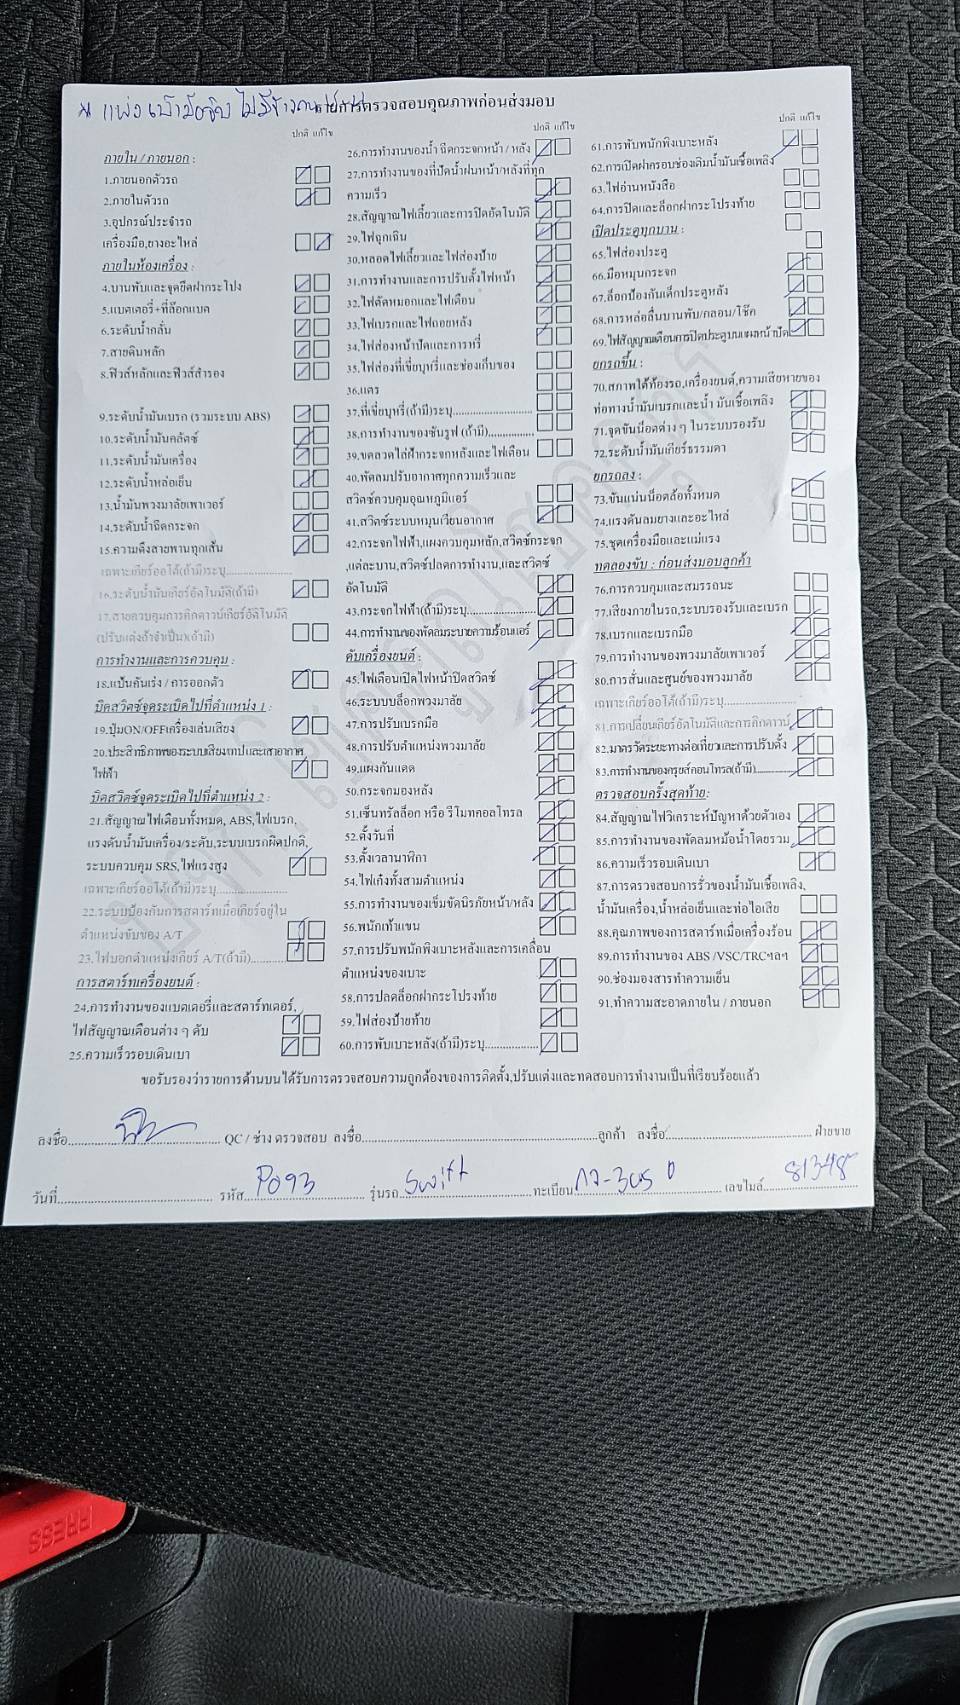 รายการตรวจสอบคุณภาพก่อนส่งมอบ
ปกติ แก้ไข
ภายใน / ภายนอก :
1.ภายนอกตัวรถ
2.ภายในตัวรถ
3.อุปกรณ์ประจำรถ
เครื่องมือ,ยางอะไหล่
ภายในห้องเครื่อง :
4.บานพับและจุดยึดฝากระโปง
5.แบตเตอรี่+ที่ล๊อกแบต
6.ระดับน้ำกลั่น
7.สายดินหลัก
8.ฟิวส์หลักและฟิวส์สำรอง
9.ระดับน้ำมันเบรก (รวมระบบ ABS)
10.ระดับน้ำมันคลัตซ์
11.ระดับน้ำมันเครื่อง
12.ระดับน้ำหล่อเย็น
13.น้ำมันพวงมาลัยเพาเวอร์
14.ระดับน้ำฉีดกระจก
15.ความตึงสายพานทุกเส้น
เฉพาะเกียร์ออโต้(ถ้ามี)ระบุ
16.ระดับน้ำมันเกียร์อัตโนมัติ(ถ้ามี)
17.สายควบคุมการคิกดาวน์เกียร์อัติโนมัติ
(ปรับแต่งถ้าจำเป็น)(ถ้ามี)
การทำงานและการควบคุม :
18.แป้นคันเร่ง / การออกตัว
บิดสวิตช์จุดระเบิดไปที่ตำแหน่ง 1 :
19.ปุ่มON/OFFเครื่องเล่นเสียง
20.ประสิทธิภาพของระบบเสียงเทปและเสาอากาศ
ไฟฟ้า
บิดสวิตช์จุดระเบิดไปที่ตำแหน่ง 2 :
21.สัญญาณไฟเตือนทั้งหมด, ABS, ไฟเบรก,
แรงดันน้ำมันเครื่อง/ระดับ,ระบบเบรกผิดปกติ,
ระบบควบคุม SRS,ไฟแรงสูง
เฉพาะเกียร์ออโต้(ถ้ามี)ระบุ
22.ระบบป้องกันการสตาร์ทเมื่อเกียร์อยู่ใน
ตำแหน่งขับของ A/T
23.ไฟบอกตำแหน่งเกียร์ A/T(ถ้ามี)
การสตาร์ทเครื่องยนต์ :
24.การทำงานของแบตเตอรี่และสตาร์ทเตอร์,
ไฟสัญญาณเตือนต่าง ๆ ดับ
25.ความเร็วรอบเดินเบา
ปกติ แก้ไข
26.การทำงานของน้ำ ฉีดกระจกหน้า / หลัง
27.การทำงานของที่ปัดน้ำฝนหน้า/หลังที่ทุก
ความเร็ว
28.สัญญาณไฟเลี้ยวและการปิดอัตโนมัติ
29.ไฟฉุกเฉิน
30.หลอดไฟเลี้ยวและไฟส่องป้าย
31.การทำงานและการปรับตั้งไฟหน้า
32.ไฟตัดหมอกและไฟเตือน
33.ไฟเบรกและไฟถอยหลัง
34.ไฟส่องหน้าปัดและการหรี่
35.ไฟส่องที่เขี่ยบุหรี่และช่องเก็บของ
36.แตร
37.ที่เขี่ยบุหรี่(ถ้ามี)ระบุ
38.การทำงานของซันรูฟ (ถ้ามี)
39.ขดลวดไล่ฝ้ากระจกหลังและไฟเตือน
40.พัดลมปรับอากาศทุกความเร็วและ
สวิตช์ควบคุมอุณหภูมิแอร์
41.สวิตช์ระบบหมุนเวียนอากาศ
42.กระจกไฟฟ้า,แผงควบคุมหลัก,สวิตช์กระจก
,แต่ละบาน,สวิตช์ปลดการทำงาน,และสวิตช์
อัตโนมัติ
43.กระจกไฟฟ้า(ถ้ามี)ระบุ
44.การทำงานของพัดลมระบายความร้อนแอร์
ดับเครื่องยนต์ :
45.ไฟเตือนเปิดไฟหน้าปิดสวิตช์
46.ระบบบล็อกพวงมาลัย
47.การปรับเบรกมือ
48.การปรับตำแหน่งพวงมาลัย
49.แผงกันแดด
50.กระจกมองหลัง
51.เซ็นทรัลล็อก หรือ รีโมทคอลโทรล
52.ตั้งวันที่
53.ตั้งเวลานาฬิกา
54.ไฟเก๋งทั้งสามตำแหน่ง
55.การทำงานของเข็มขัดนิรภัยหน้า/หลัง
56.พนักเท้าแขน
57.การปรับพนักพิงเบาะหลังและการเคลื่อน
ตำแหน่งของเบาะ
58.การปลดล็อกฝากระโปรงท้าย
59.ไฟส่องป้ายท้าย
60.การพับเบาะหลัง(ถ้ามี)ระบุ
ปกติ แก้ไข
61.การพับพนักพิงเบาะหลัง
62.การเปิดฝาครอบช่องเติมน้ำมันเชื้อเพลิง
63.ไฟอ่านหนังสือ
64.การปิดและล็อกฝากระโปรงท้าย
เปิดประตูทุกบาน :
65.ไฟส่องประตู
66.มือหมุนกระจก
67.ล็อกป้องกันเด็กประตูหลัง
68.การหล่อลื่นบานพับ/กลอน/โช๊ค
69.ไฟสัญญาณเตือนการปิดประตูบนแผงหน้าปัด
ยกรถขึ้น :
70.สภาพใต้ท้องรถ,เครื่องยนต์,ความเสียหายของ
ท่อทางน้ำมันเบรกและน้ำมันเชื้อเพลิง
71.จุดขันน็อตต่าง ๆ ในระบบรองรับ
72.ระดับน้ำมันเกียร์ธรรมดา
ยกรถลง :
73.ขันแน่นน็อตล้อทั้งหมด
74.แรงดันลมยางและอะไหล่
75.ชุดเครื่องมือและแม่แรง
ทดลองขับ : ก่อนส่งมอบลูกค้า
76.การควบคุมและสมรรถนะ
77.เสียงภายในรถ,ระบบรองรับและเบรก
78.เบรกและเบรกมือ
79.การทำงานของพวงมาลัยเพาเวอร์
80.การสั่นและศูนย์ของพวงมาลัย
เฉพาะเกียร์ออโต้(ถ้ามี)ระบุ
81.การเปลี่ยนเกียร์อัตโนมัติและการคิกดาวน์
82.มาตรวัดระยะทางต่อเที่ยวและการปรับตั้ง
83.การทำงานของครูยส์คอนโทรล(ถ้ามี)
ตรวจสอบครั้งสุดท้าย:
84.สัญญาณไฟวิเคราะห์ปัญหาด้วยตัวเอง
85.การทำงานของพัดลมหม้อน้ำโดยรวม
86.ความเร็วรอบเดินเบา
87.การตรวจสอบการรั่วของน้ำมันเชื้อเพลิง,
น้ำมันเครื่อง,น้ำหล่อเย็นและท่อไอเสีย
88.คุณภาพของการสตาร์ทเมื่อเครื่องร้อน
89.การทำงานของ ABS /VSC/TRCฯลฯ
90.ช่องมองสารทำความเย็น
91.ทำความสะอาดภายใน / ภายนอก
ขอรับรองว่ารายการด้านบนได้รับการตรวจสอบความถูกต้องของการติดตั้ง,ปรับแต่งและทดสอบการทำงานเป็นที่เรียบร้อยแล้ว
ลงชื่อ QC / ช่าง ตรวจสอบ ลงชื่อ ลูกค้า ลงชื่อ ฝ่ายขาย
วันที่ รหัส P093 รุ่นรถ Swift ทะเบียน เลขไมล์ 81348
PRESS